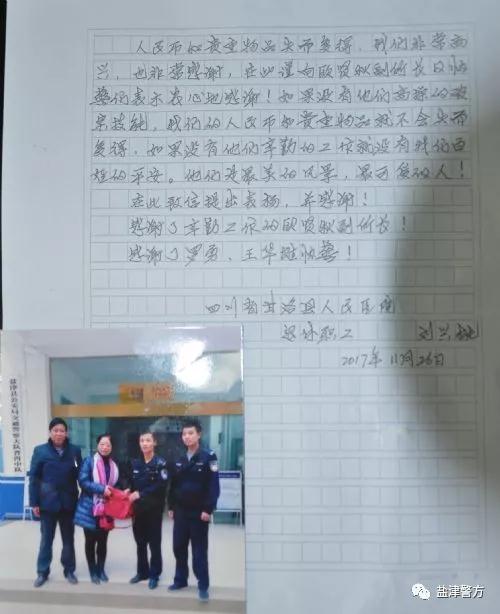 人民币和贵重物品失而复得，我们非常高
兴，也非常感谢，在此谨向欧贤纵副所长及协
警们表示衷心地感谢！如果没有他们高深的破
案技能，我们的人民币和贵重物品就不会失而
复得，如果没有他们辛勤的工作就没有我们百
姓的平安。他们是最美的风景，最可爱的人！
在此致信提出表扬，并感谢！
感谢了辛勤工作的欧贤纵副所长！
感谢了罗勇、王华雄协警！
四川省甘洛县人民医院
退休职工 刘兴
2017年11月26日
盐津县公安局交通警察大队普洱中队
盐津警方